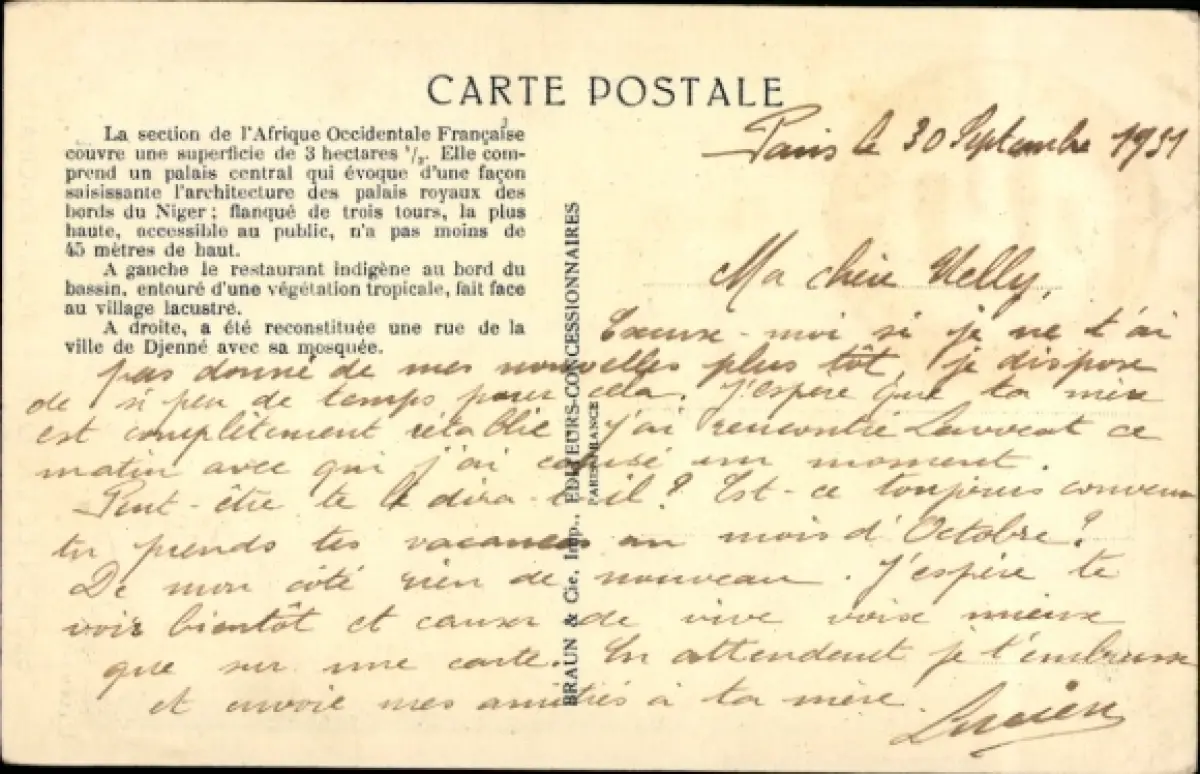 CARTE POSTALE
La section de l'Afrique Occidentale Française
couvre une superficie de 3 hectares 1/2. Elle com-
prend un palais central qui évoque d'une façon
saisissante l'architecture des palais royaux des
bords du Niger; flanqué de trois tours, la plus
haute, accessible au public, n'a pas moins de
45 mètres de haut.
A gauche le restaurant indigène au bord du
bassin, entouré d'une végétation tropicale, fait face
au village lacustre.
A droite, a été reconstituée une rue de la
ville de Djenné avec sa mosquée.
BRAUN & Cie, Imp., EDITEURS-CONCESSIONNAIRES
PARIS-FRANCE
Paris le 30 Septembre 1931
Ma chère Nelly,
Excuse-moi si je ne t'ai
pas donné de mes nouvelles plus tôt, je dispose
de si peu de temps pour cela. J'espère que ta mère
est complètement rétablie. J'ai rencontré ce
matin avec qui j'ai causé un moment.
Peut-être te le dira-t-il? Est-ce toujours convenu
tu prends tes vacances au mois d'Octobre?
De mon côté rien de nouveau. J'espère te
voir bientôt et causer de vive voix mieux
que sur une carte. En attendant je t'embrasse
et envoie mes amitiés à ta mère.
Lucien